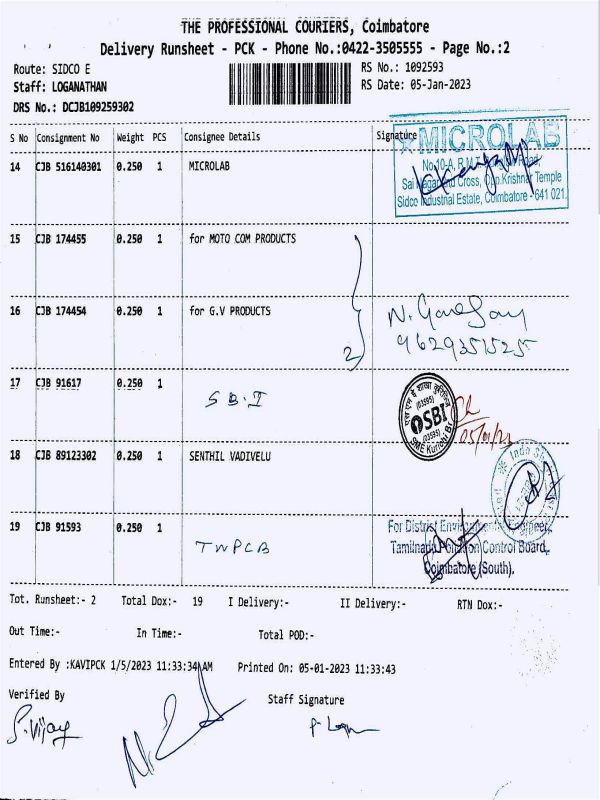 THE PROFESSIONAL COURIERS, Coimbatore
Delivery Runsheet - PCK - Phone No.:0422-3505555 - Page No.:2
Route: SIDCO E
RS No.: 1092593
Staff: LOGANATHAN
RS Date: 05-Jan-2023
DRS No.: DCJB109259302
S No Consignment No Weight PCS Consignee Details Signature
14 CJB 516140301 0.250 1 MICROLAB
MICROLAB
No.10-A, R.M.
Cross, Opp.Krishnar Temple
Sidco Industrial Estate, Coimbatore - 641 021.
15 CJB 174455 0.250 1 for MOTO COM PRODUCTS
16 CJB 174454 0.250 1 for G.V PRODUCTS
2
9629351525
17 CJB 91617 0.250 1
S B.I
(03595)
SBI
(03595)
SME Kurichi Br.
05/01/23
18 CJB 89123302 0.250 1 SENTHIL VADIVELU
19 CJB 91593 0.250 1
TNPCB
For District Environmental Engineer,
Tamilnadu Pollution Control Board,
Coimbatore (South).
Tot. Runsheet:- 2 Total Dox:- 19 I Delivery:- II Delivery:- RTN Dox:-
Out Time:- In Time:- Total POD:-
Entered By :KAVIPCK 1/5/2023 11:33:34 AM Printed On: 05-01-2023 11:33:43
Verified By
Staff Signature
S.Vijay